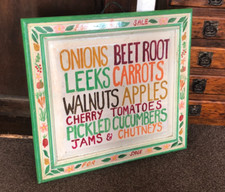 FOR SALE
ONIONS BEET ROOT
LEEKS CARROTS
WALNUTS APPLES
CHERRY TOMATOES
PICKLED CUCUMBERS
JAMS & CHUTNEYS
FOR SALE